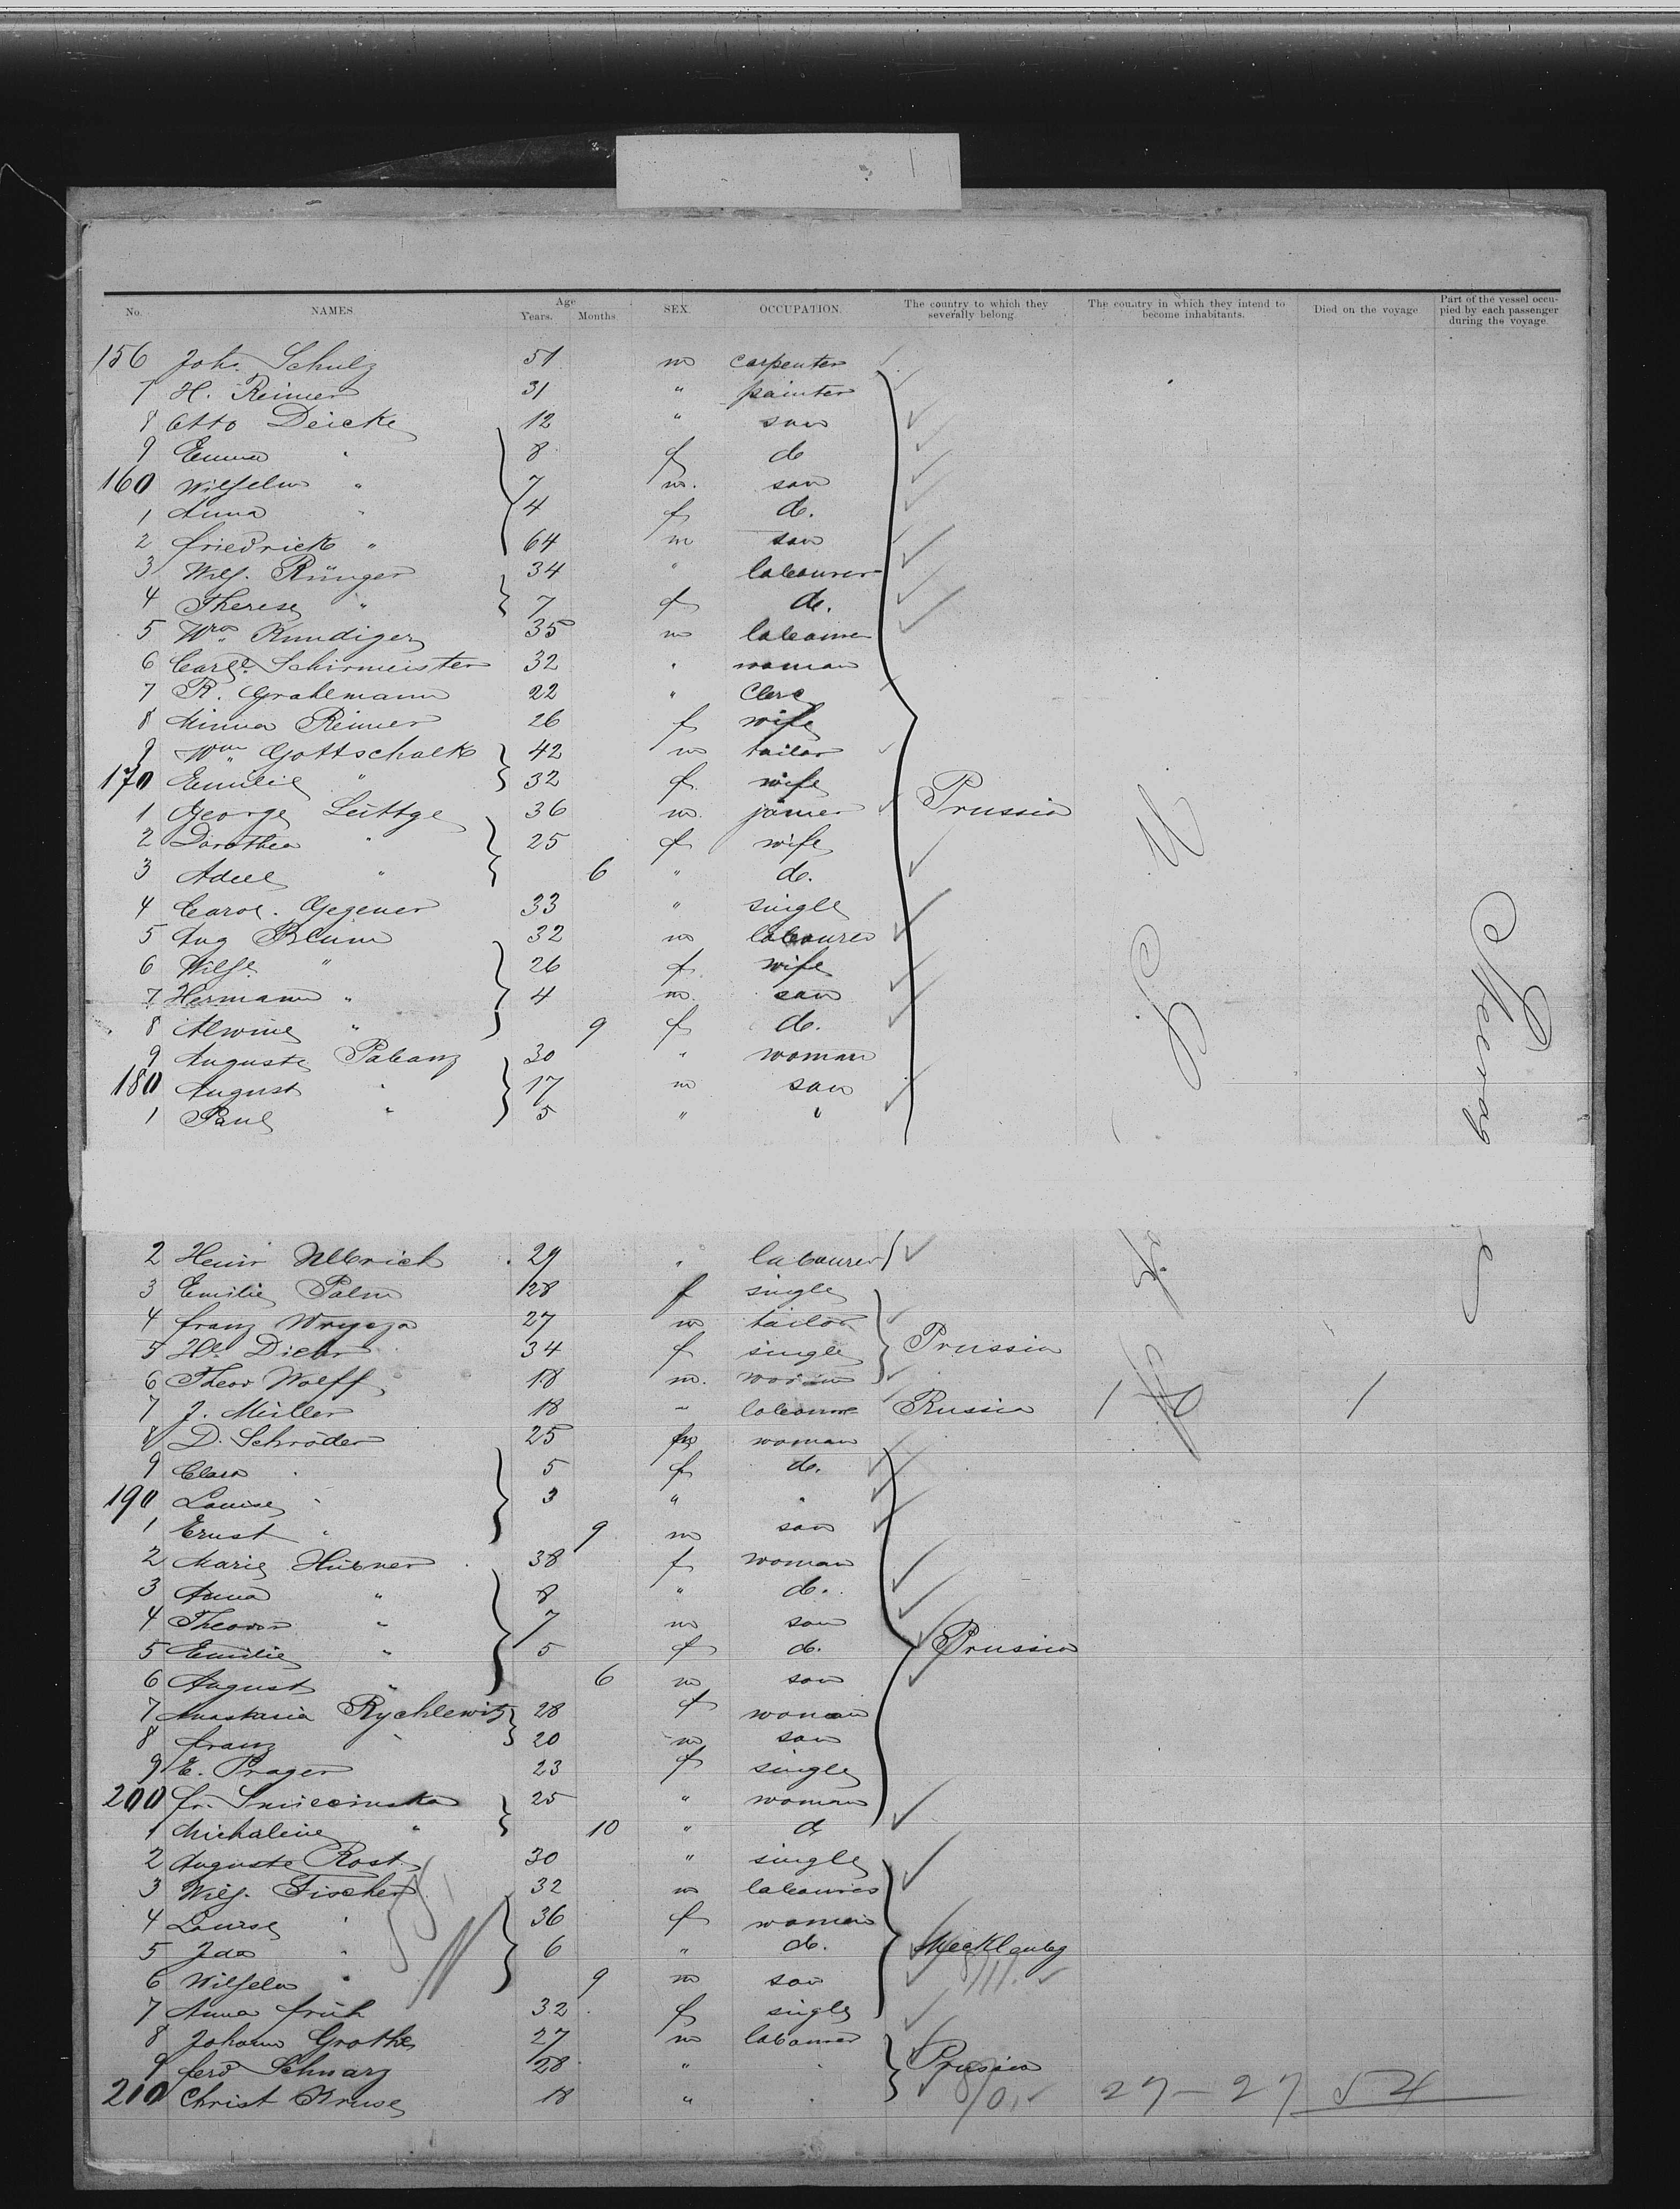 No. NAMES. Age Years. Months. SEX. OCCUPATION. The country to which they severally belong. The country in which they intend to become inhabitants. Died on the voyage Part of the vessel occupied by each passenger during the voyage.
156 Joh. Schulz 51 m carpenter
7 H. Reimer 31 " painter
8 Otto Deicke 12 " son
9 Emma " 8 f d.
160 Wilhelm " 7 m. son
1 Anna " 4 f d.
2 Friedrich " 64 m son
3 Wilh. Rünger 34 " labourer
4 Therese " 7 f d.
5 35 m labourer
6 Schirmeister 32 " woman
7 R. Grahlmann 22 " Clerc
8 Minna Reimer 26 f wife
9 Wm Gottschalk 42 m tailor
170 Emilie " 32 f. wife Prussia
1 George Lüttge 36 m. joiner
2 Dorothea " 25 f wife
3 Adele " 6 " d.
4 Carol. Gegener 33 " single
5 Aug Blum 32 m labourer
6 Wilh. " 26 f. wife
7 Hermann " 4 m. son
8 Alwine " 9 f d.
9 Auguste Pabanz 30 " woman
180 August " 17 m son
1 Paul " 5 " "
2 Heinr Ulbrich 29 " labourer
3 Emilie Palm 28 f single
4 Franz 27 m tailor
5 34 f single Prussia
6 Theor Wolff 18 m.
7 J. Müller 18 " labourer Russia 1 1
8 D. Schröder 25 woman
9 Clara " 5 f d.
190 Louise " 3 " "
1 Ernst " 9 m son
2 Marie Hübner 38 f woman
3 Anna " 8 " d.
4 Theodor " 7 m son
5 Emilie " 5 f d. Prussia
6 August " 6 m son
7 Anastasia Rychlewitz 28 f woman
8 Franz " 20 m son
9 E. Prager 23 f single
200 Fr. 25 " woman
1 Michaline " 10 " d
2 Auguste Rost 30 " single
3 Wilh. Fischer 32 m labourer
4 Louise " 36 f woman
5 Ida " 6 " d. Mecklenbg
6 Wilhelm " 9 m son
7 Anna Früh 32 f single
8 Johann Grothe 27 m labourer
9 Ferd Schwarz 28 " " Prussia
210 Christ Kruse 18 " " 27 – 27 54
Steerage